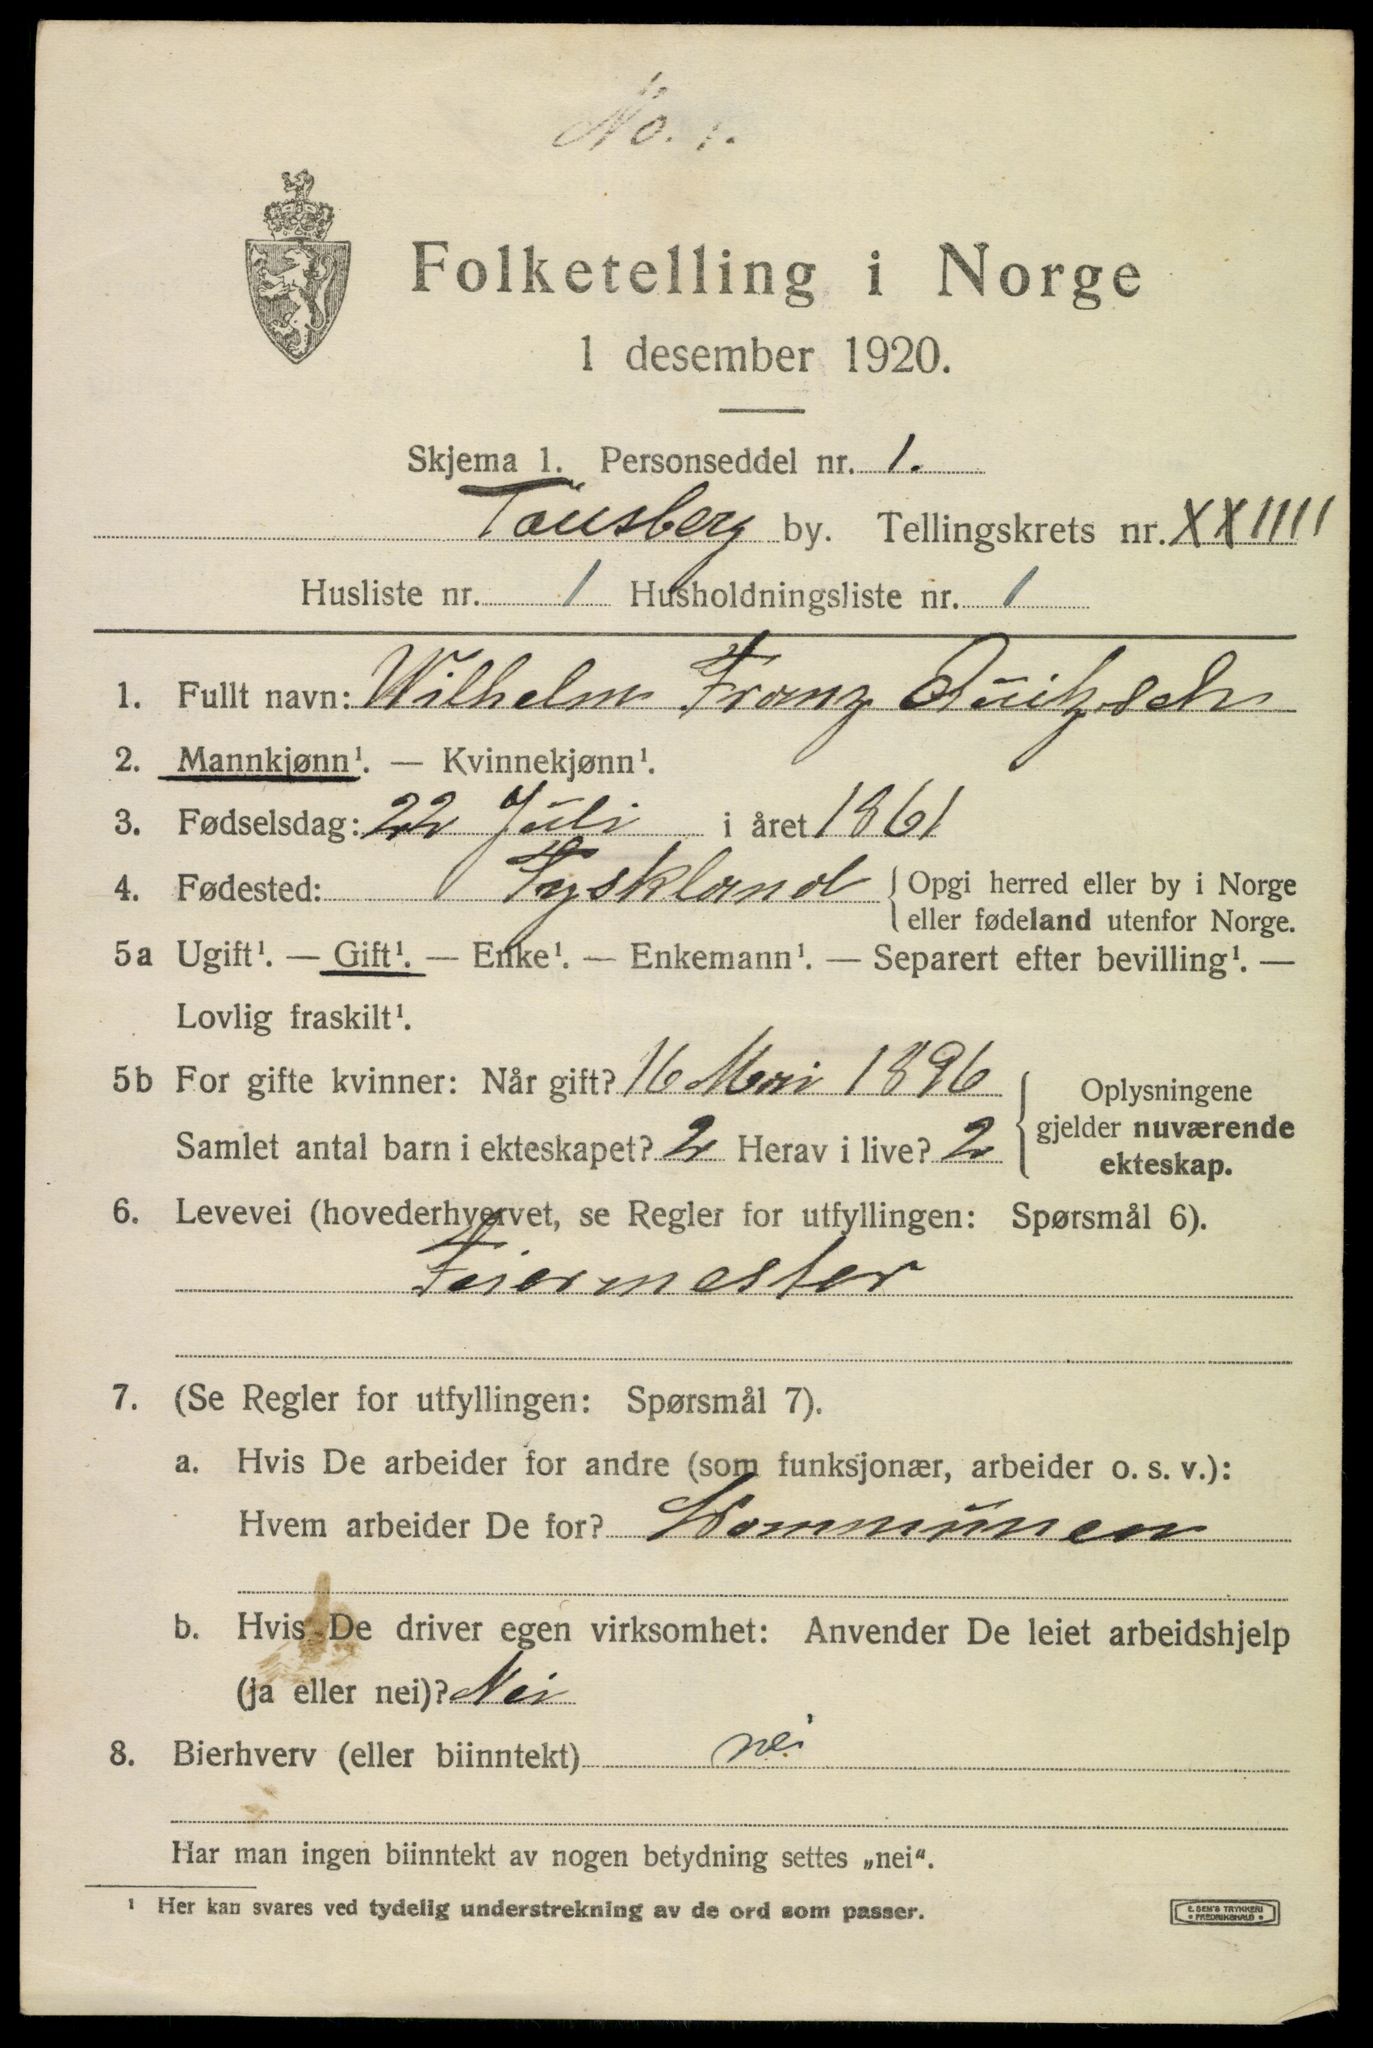 No. 1.
Folketelling i Norge
1 desember 1920.
Skjema 1. Personseddel nr. 1.
Tønsberg by. Tellingskrets nr. XXIIII
Husliste nr. 1 Husholdningsliste nr. 1
1. Fullt navn: Wilhelm Franz Quitzsch
2. Mannkjønn¹. — Kvinnekjønn¹.
3. Fødselsdag: 22 Juli i året 1861
4. Fødested: Tyskland { Opgi herred eller by i Norge
eller fødeland utenfor Norge.
5a Ugift¹. — Gift¹. — Enke¹. — Enkemann¹. — Separert efter bevilling¹. —
Lovlig fraskilt¹.
5b For gifte kvinner: Når gift? 16 Mai 1896
Samlet antal barn i ekteskapet? 2 Herav i live? 2
{ Oplysningene
gjelder nuværende
ekteskap.
6. Levevei (hovederhvervet, se Regler for utfyllingen: Spørsmål 6).
Feiermester
7. (Se Regler for utfyllingen: Spørsmål 7).
a. Hvis De arbeider for andre (som funksjonær, arbeider o. s. v.):
Hvem arbeider De for? Kommunen
b. Hvis De driver egen virksomhet: Anvender De leiet arbeidshjelp
(ja eller nei)? Nei
8. Bierhverv (eller biinntekt) nei
Har man ingen biinntekt av nogen betydning settes „nei“.
¹ Her kan svares ved tydelig understrekning av de ord som passer.
E. SEM'S TRYKKERI
• FREDRIKSHALD •